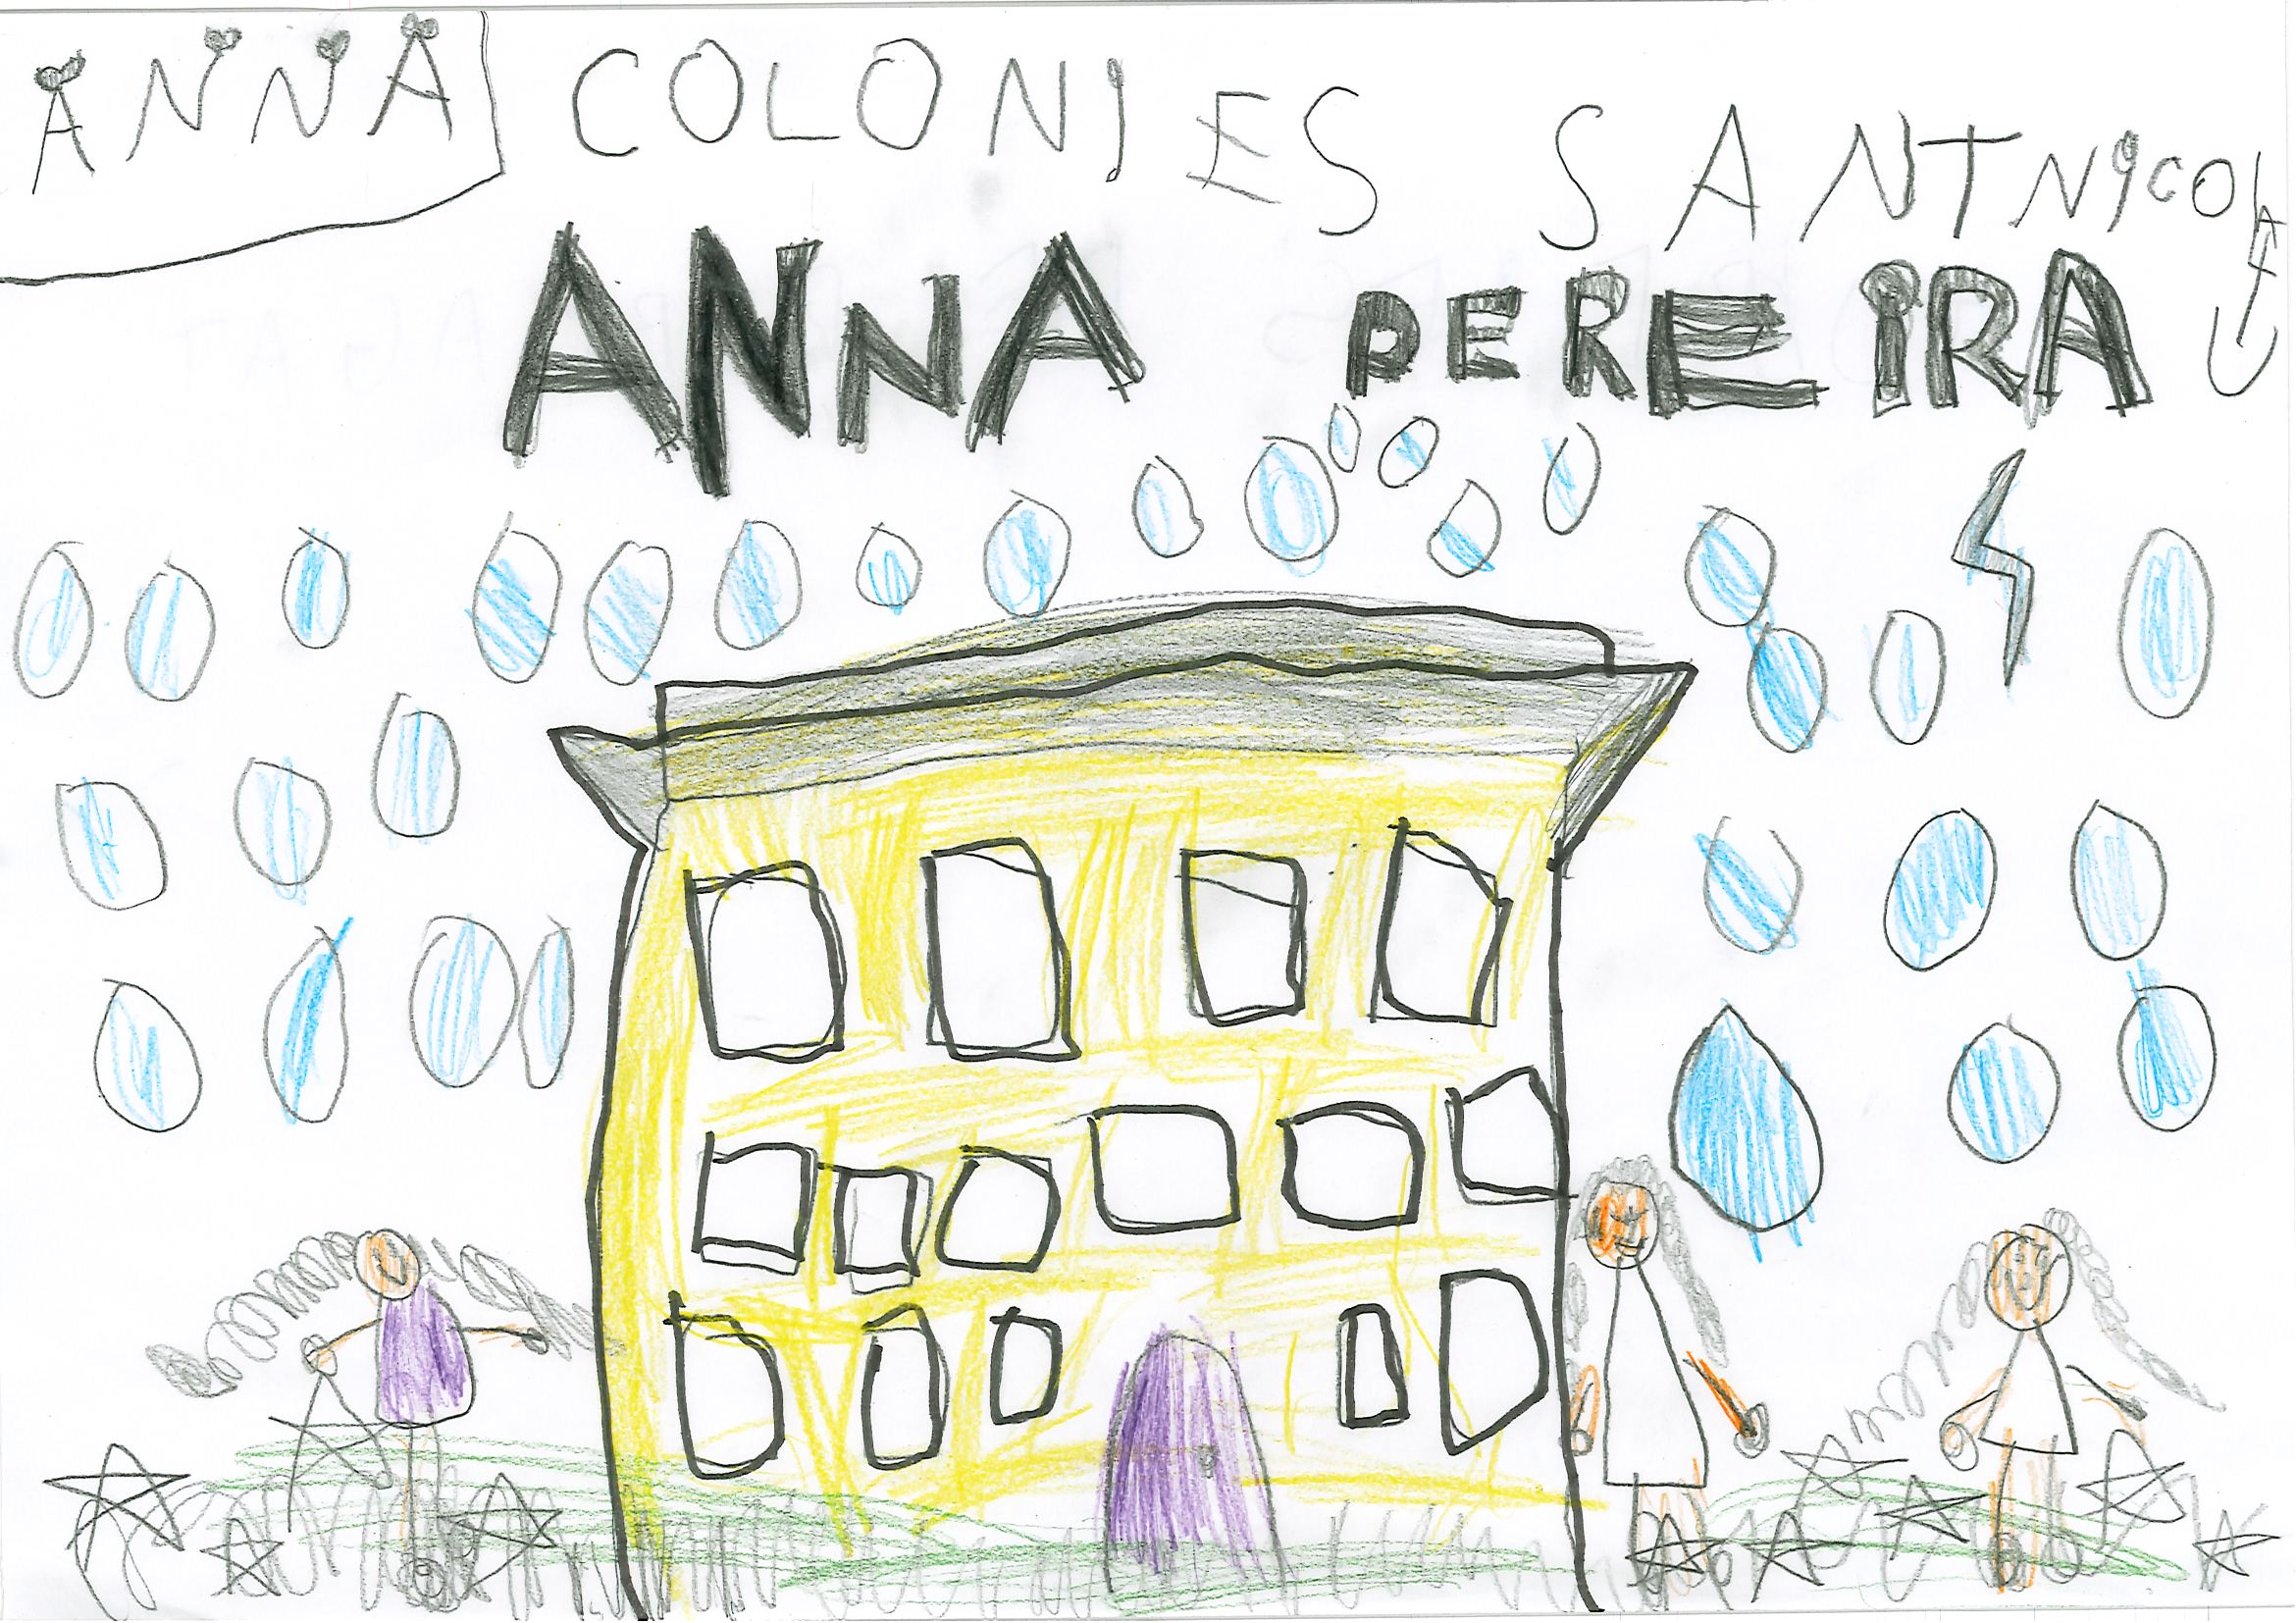 ANNA
COLONIES SANT NICOLAU
ANNA PEREIRA